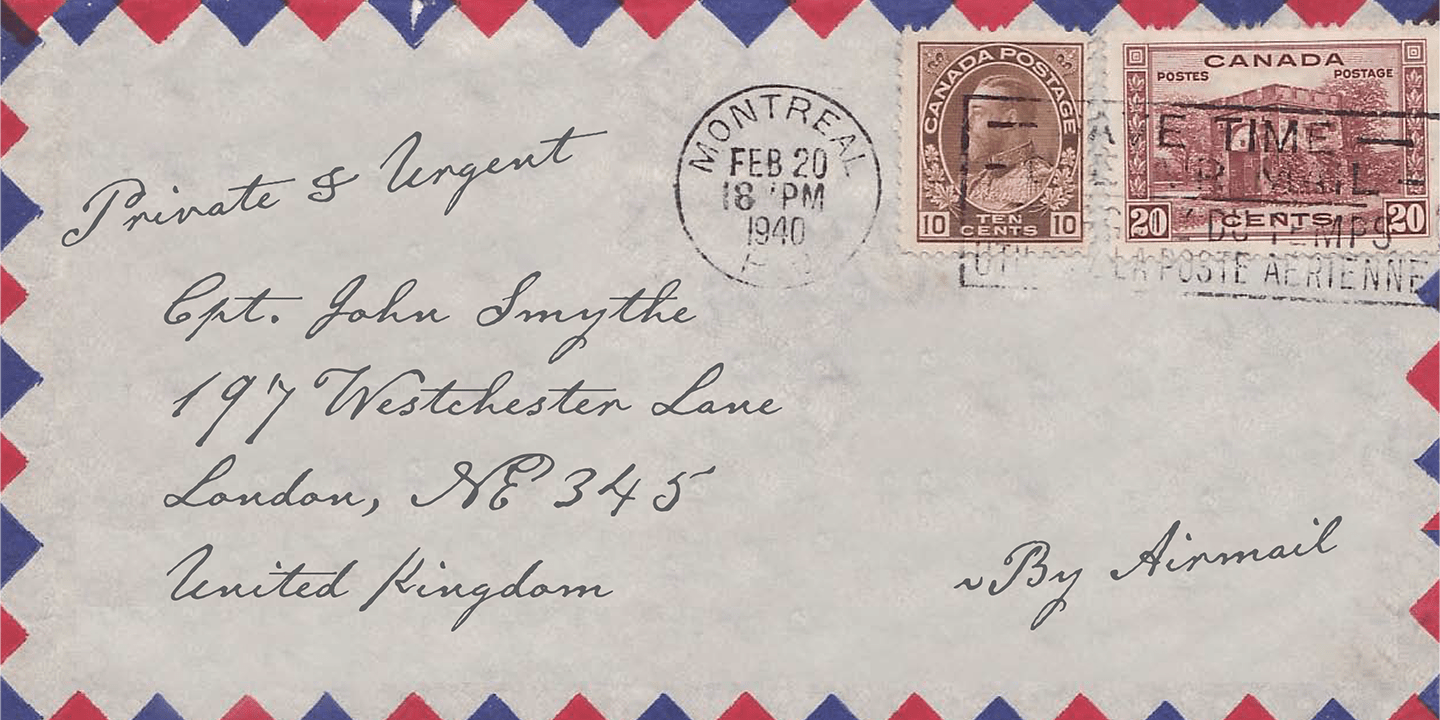 Private & Urgent
Cpt. John Smythe
197 Westchester Lane
London, NE 345
United Kingdom
By Airmail
MONTREAL
FEB 20
18 PM
1940
CANADA POSTAGE
10 TEN CENTS 10
CANADA
POSTES POSTAGE
20 CENTS 20
TIME
DU TEMPS
LA POSTE AERIENNE